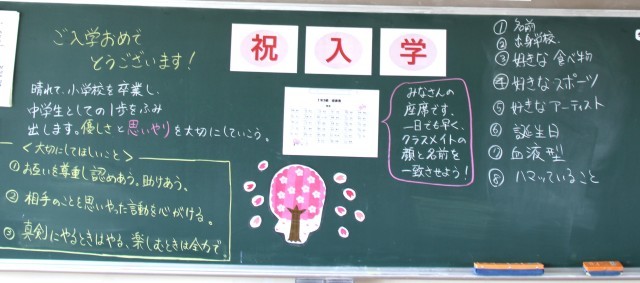 ご入学おめで
とうございます！
晴れて、小学校を卒業し、
中学生としての1歩をふみ
出します。優しさと思いやりを大切にしていこう。
＜大切にしてほしいこと＞
① お互いを尊重し認めあう。助けあう。
② 相手のことを思いやった言動を心がける。
③ 真剣にやるときはやる、楽しむときは全力で。
祝 入 学
みなさんの
座席です。
一日でも早く、
クラスメイトの
顔と名前を
一致させよう！
① 名前
② 出身学校
③ 好きな食べ物
④ 好きなスポーツ
⑤ 好きなアーティスト
⑥ 誕生日
⑦ 血液型
⑧ ハマッていること